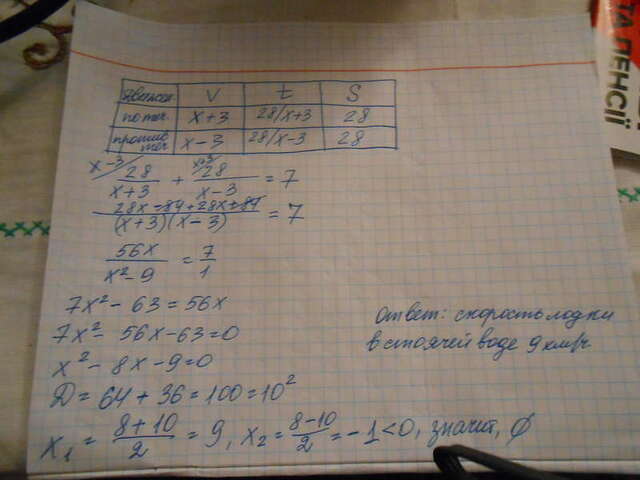 движен. V t S
по теч. x+3 28/x+3 28
против теч x-3 28/x-3 28
x-3/ 28/(x+3) + x+3/ 28/(x-3) = 7
(28x-84+28x+84)/((x+3)(x-3)) = 7
56x/(x²-9) = 7/1
7x²-63=56x
7x²-56x-63=0
x²-8x-9=0
D=64+36=100=10²
x₁ = (8+10)/2 = 9, x₂ = (8-10)/2 = -1<0, значит, ∅
Ответ: скорость лодки
в стоячей воде 9 км/ч
ТА ПЕНСІЇ